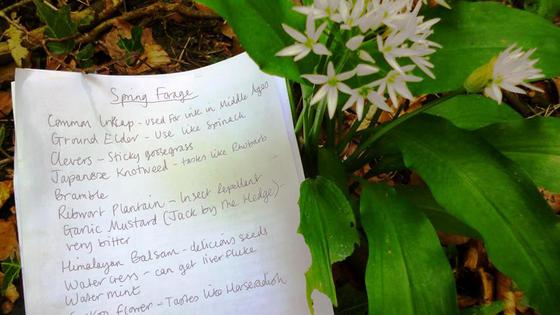 Spring Forage
Common Inkcap - used for ink in Middle Ages
Ground Elder - Use like Spinach
Clevers - Sticky goosegrass
Japanese Knotweed - tasks like Rhubarb
Bramble
Ribwort Plantain - Insect repellent
Garlic Mustard (Jack by the Hedge) -
very bitter
Himalayan Balsam - delicious seeds
Water Cress - can get liver fluke
Water mint
Flower - Tastes like Horseradish